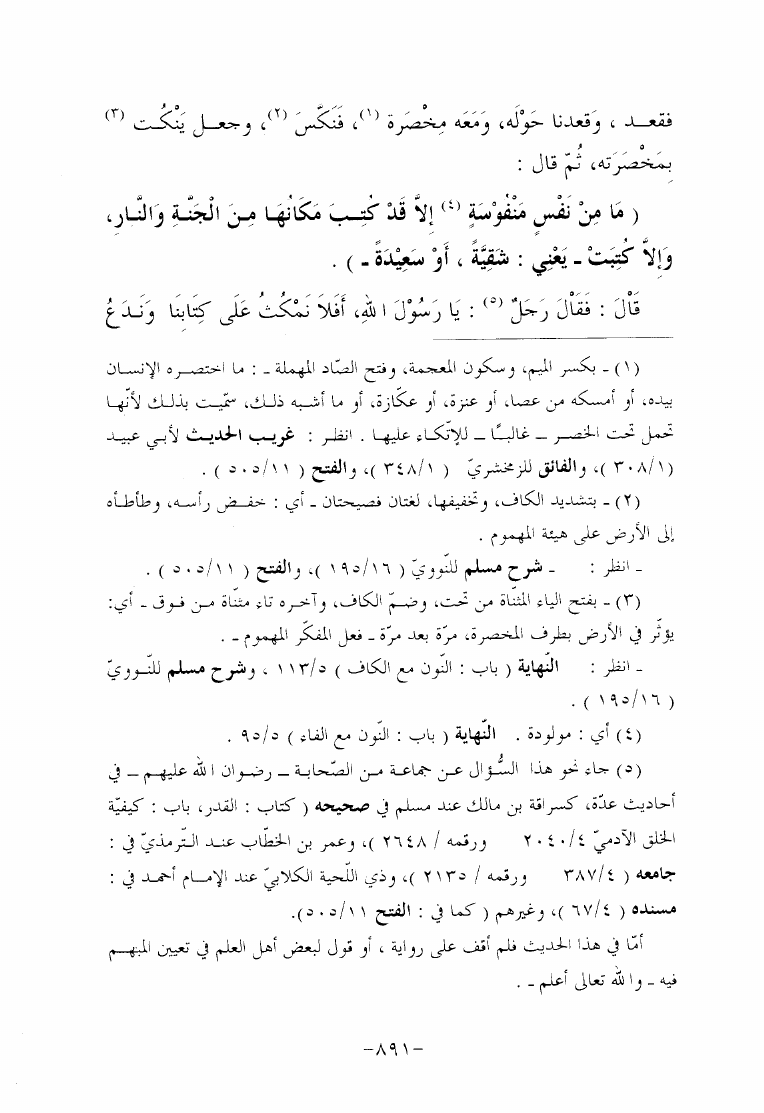 فقعـد ، وَقعدنا حَوْلَه، وَمَعَه مِخْصَرة (١)، فَنَكَّسَ (٢)، وجعـل يَنْكُـت (٣)
بِمَخْصَرَتِه، ثُمّ قال :
( مَا مِنْ نَفْسٍ مَنْفُوْسَةٍ (٤) إلاَّ قَدْ كُتِـبَ مَكَانُهَـا مِـنَ الْجَنَّـةِ وَالنَّـار،
وَإلاَّ كُتِبَتْ ـ يَعْنِي : شَقِيَّةً ، أَوْ سَعِيْدَةً ـ ) .
قَالَ : فَقَالَ رَجَلٌ (٥) : يَا رَسُوْلَ الله، أَفَلاَ نَمْكُثُ عَلَى كِتَابِنَا وَنَـدَعُ
(١) ـ بكسر الميم، وسكون المعجمة، وفتح الصّاد المهملة ـ : ما اختصـره الإنسـان
بيده، أو أمسكه من عصا، أو عنزة، أو عكّازة، أو ما أشبه ذلـك، سمّيـت بذلـك لأنّهـا
تحمل تحت الخصـر – غالبـًا – للإتّكـاء عليهـا . انظـر : غريـب الحديـث لأبـي عبيـد
(٣٠٨/١)، والفائق للزمخشريّ ( ٣٤٨/١ )، والفتح ( ٥٠٥/١١ ) .
(٢) ـ بتشديد الكاف، وتخفيفها، لغتان فصيحتان ـ أي : خفـض رأسـه، وطأطـأه
إلى الأرض على هيئة المهموم .
ـ انظر : ـ شرح مسلم للنّوويّ ( ١٩٥/١٦ )، والفتح ( ٥٠٥/١١ ) .
(٣) ـ بفتح الياء المثنّاة من تحت، وضـمّ الكاف، وآخـره تاء مثنّاة مـن فـوق ـ أي:
يؤثّر في الأرض بطرف المخصرة، مرّة بعد مرّة ـ فعل المفكّر المهموم ـ .
ـ انظر : النّهاية ( باب : النّون مع الكاف ) ١١٣/٥ ، وشرح مسلم للنّـوويّ
( ١٩٥/١٦ ) .
(٤) أي : مولودة . النّهاية ( باب : النّون مع الفاء ) ٩٥/٥ .
(٥) جاء نحو هذا السُّؤال عـن جماعـة مـن الصّحابـة – رضـوان الله عليهـم – في
أحاديث عدّة، كسراقة بن مالك عند مسلم في صحيحه ( كتاب : القدر، باب : كيفيّة
الخلق الآدميّ ٢٠٤٠/٤ ورقمه / ٢٦٤٨ )، وعمر بن الخطّاب عنـد الـتّرمذيّ في :
جامعه ( ٣٨٧/٤ ورقمه / ٢١٣٥ )، وذي اللّحية الكلابيّ عند الإمـام أحمـد في :
مسنده ( ٦٧/٤ )، وغيرهم ( كما في : الفتح ٥٠٥/١١).
أمّا في هذا الحديث فلم أقف على رواية ، أو قول لبعض أهل العلم في تعيين المبهـم
فيه ـ والله تعالى أعلم ـ .
–٨٩١–